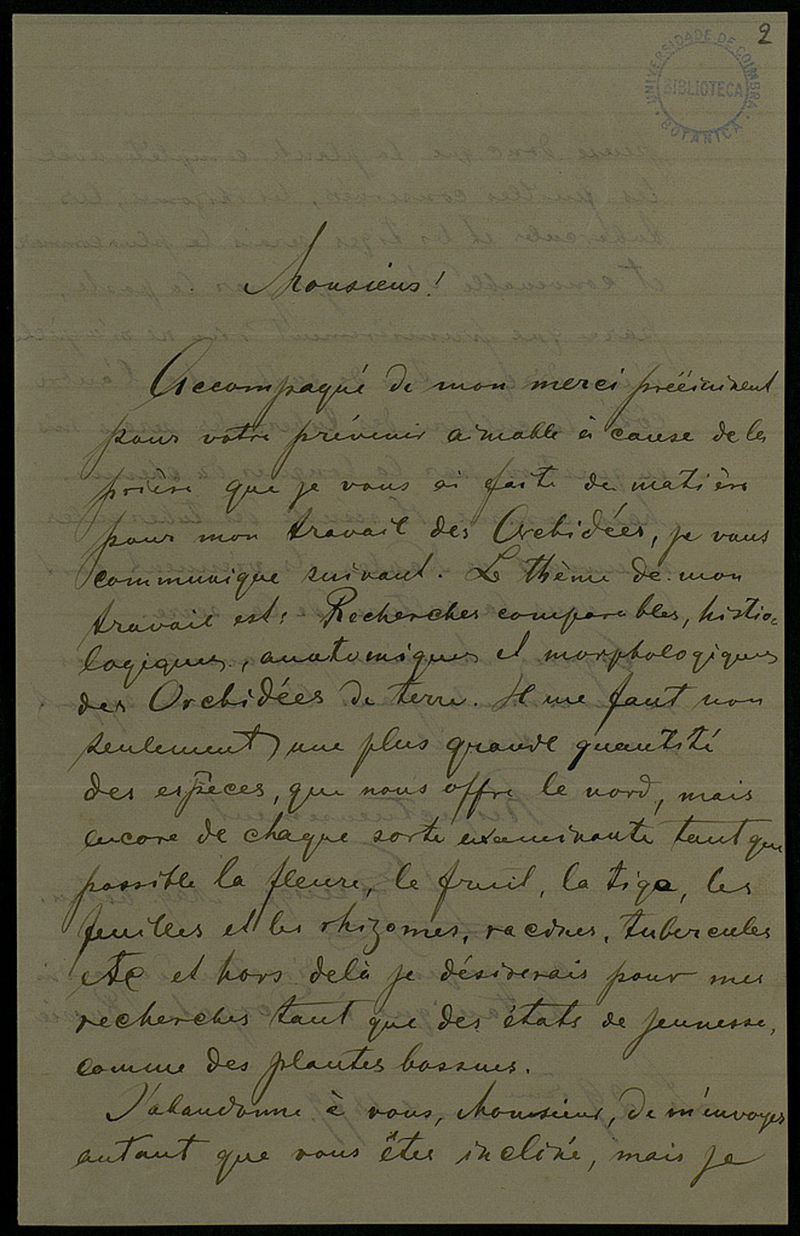 2
UNIVERSIDADE DE COIMBRA
BIBLIOTECA
BOTANICA
Monsieur!
Accompagné de mon merci prééminent
pour votre prévenir aimable à cause de la
prière que je vous ai faite de matière
pour mon travail des Orchidées, je vous
communique suivant. Le thème de mon
travail est: Recherches comparables, histio-
logiques, anatomiques et morphologiques
des Orchidées de terre. Il me faut non
seulement une plus grande quantité
des espèces, que nous offre le nord, mais
encore de chaque sorte examinante tant que
possible la fleure, le fruit, la tige, les
feuilles et les rhizomes, racines, tubercules
etc et hors delà je désirerais pour mes
recherches tant que des états de jeunesse,
comme des plantes bossues.
J'abandonne à vous, Monsieur, de m'envoyer
autant que vous êtes incliné, mais je